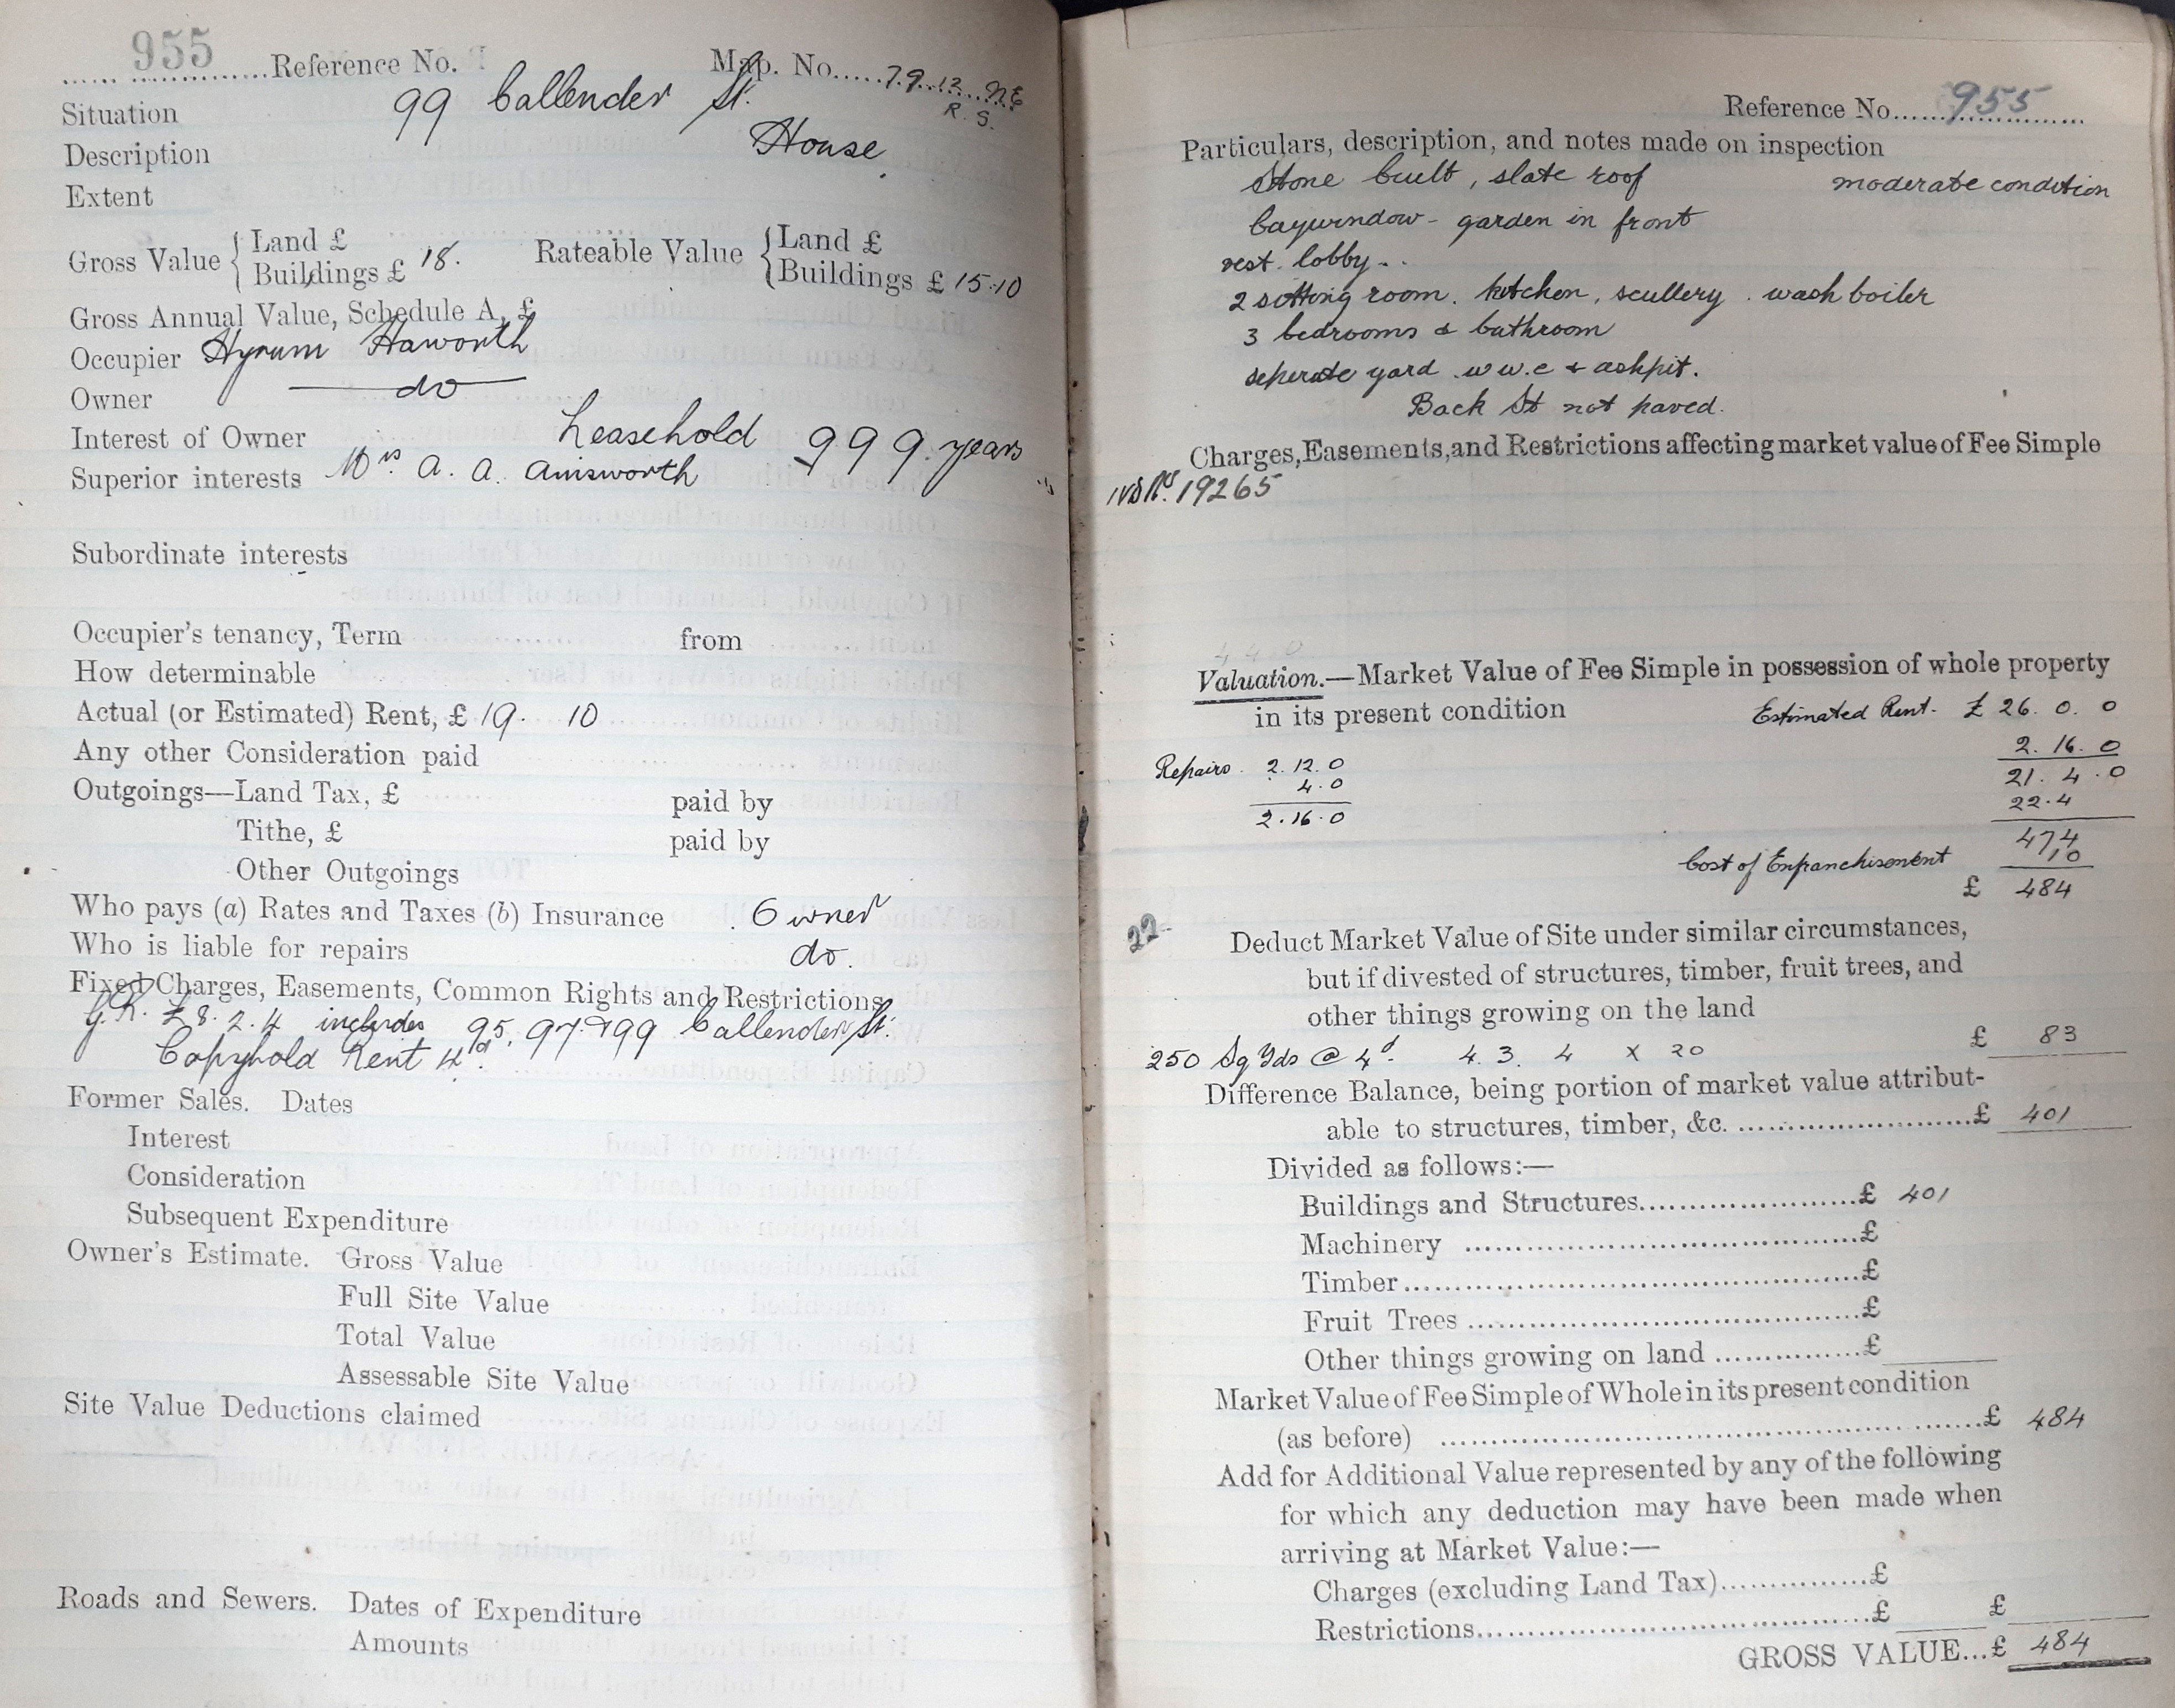 955 Reference No. Map. No. 79.13 NE
R. S.
Situation 99 Callender St.
Description House
Extent
Gross Value { Land £
Buildings £ 18. Rateable Value { Land £
Buildings £ 15.10
Gross Annual Value, Schedule A, £
Occupier Hyrum Haworth
Owner do
Interest of Owner Leasehold 999 years
Superior interests Mrs. A. A. Ainsworth
Subordinate interests
Occupier's tenancy, Term from
How determinable
Actual (or Estimated) Rent, £ 19. 10
Any other Consideration paid
Outgoings—Land Tax, £ paid by
Tithe, £ paid by
Other Outgoings
Who pays (a) Rates and Taxes (b) Insurance Owner
Who is liable for repairs do.
Fixed Charges, Easements, Common Rights and Restrictions
G.R. £8.2.4 includes 95, 97 & 99 Callender St.
Copyhold Rent 4d.
Former Sales. Dates
Interest
Consideration
Subsequent Expenditure
Owner's Estimate. Gross Value
Full Site Value
Total Value
Assessable Site Value
Site Value Deductions claimed
Roads and Sewers. Dates of Expenditure
Amounts
Reference No. 955
Particulars, description, and notes made on inspection
Stone built, slate roof moderate condition
baywindow - garden in front
vest. lobby..
2 sitting room. kitchen, scullery. wash boiler
3 bedrooms & bathroom
seperate yard. w w.c & ashpit.
Back St not paved.
Charges, Easements, and Restrictions affecting market value of Fee Simple
IVD No. 19265
440
Valuation.—Market Value of Fee Simple in possession of whole property
in its present condition Estimated Rent. £ 26. 0. 0
2. 16. 0
Repairs. 2. 12. 0 21. 4. 0
4. 0 22.4
2. 16. 0 474
Cost of Enfranchisement 10
£ 484
22
Deduct Market Value of Site under similar circumstances,
but if divested of structures, timber, fruit trees, and
other things growing on the land
250 Sq Yds @ 4d. 4. 3. 4 x 20 £ 83
Difference Balance, being portion of market value attribut-
able to structures, timber, &c. £ 401
Divided as follows:—
Buildings and Structures £ 401
Machinery £
Timber £
Fruit Trees £
Other things growing on land £
Market Value of Fee Simple of Whole in its present condition
(as before) £ 484
Add for Additional Value represented by any of the following
for which any deduction may have been made when
arriving at Market Value:—
Charges (excluding Land Tax) £
Restrictions £ £
GROSS VALUE... £ 484